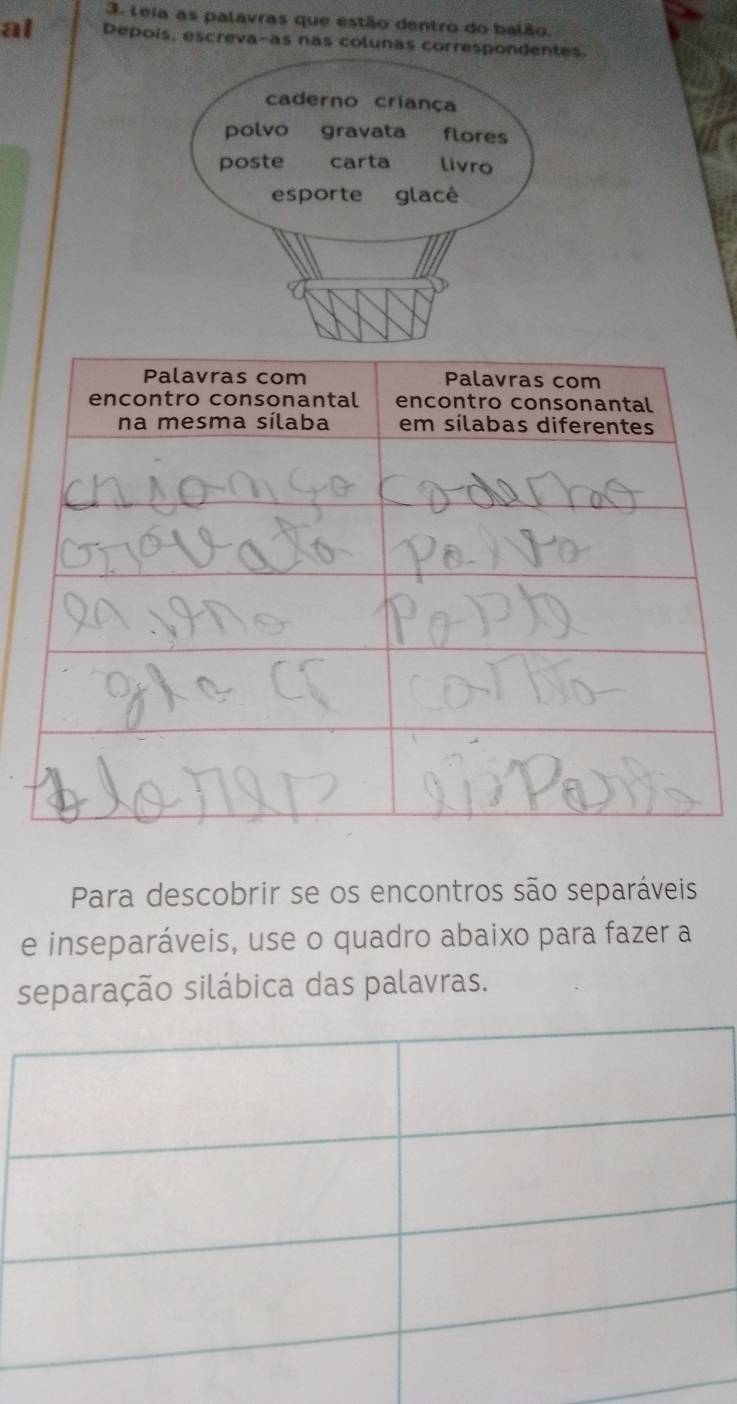 al
3. Leia as palavras que estão dentro do balão.
Depois, escreva-as nas colunas correspondentes.
caderno criança
polvo gravata flores
poste carta livro
esporte glacê
Palavras com encontro consonantal na mesma sílaba
Palavras com encontro consonantal em sílabas diferentes
coderno
polvo
carta
Para descobrir se os encontros são separáveis
e inseparáveis, use o quadro abaixo para fazer a
separação silábica das palavras.